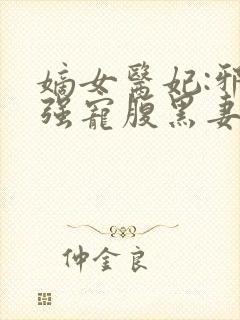 嫡女醫妃:邪
强寵腹黑妻
仲金良